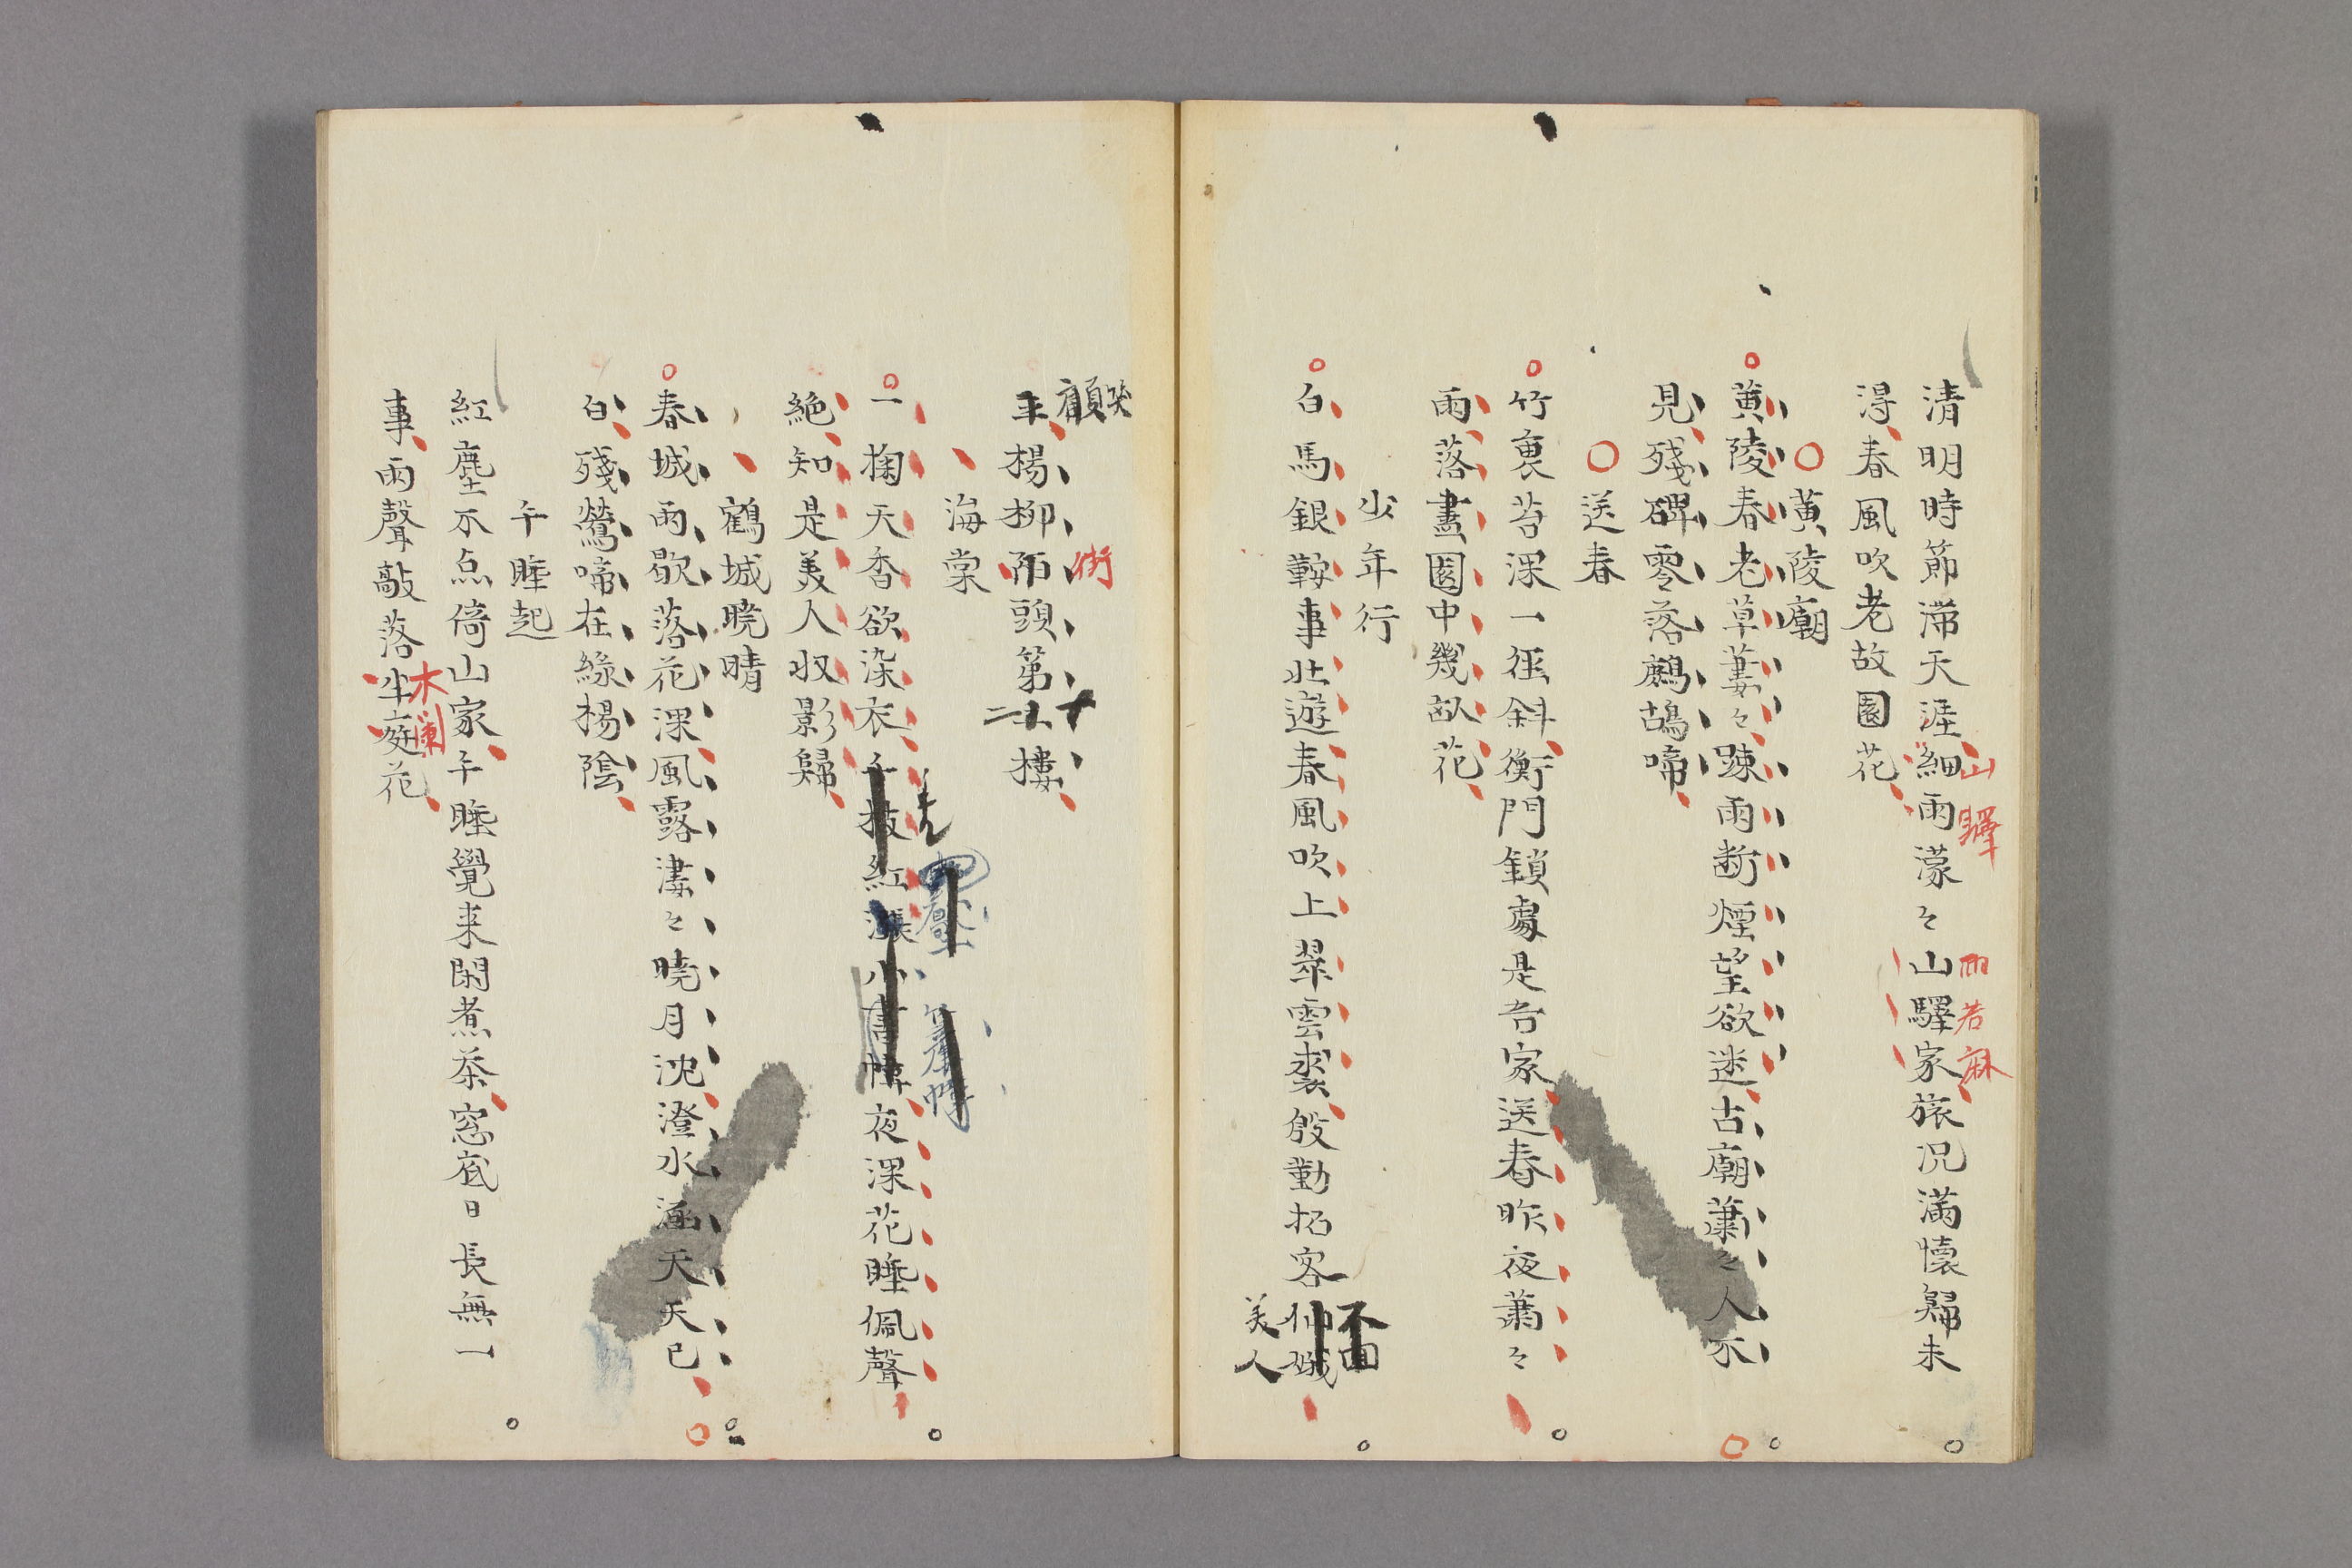 清明時節滞天涯細雨濛々山驛家旅況満懷歸未
山驛
雨若麻
淂春風吹老故園花
黄陵廟
黄陵春老草萋々踈雨断煙望欲迷古廟蕭々人不
見殘碑零落鷓鴣啼
送春
竹裏苔深一徑斜衡門鎖處是吾家送春昨夜蕭々
雨落盡園中幾畝花
少年行
白馬銀鞍事壮遊春風吹上翠雲裘殷勤招客
美人
笑顧
楊柳陌頭第十二樓
街
海棠
一掬天香欲染衣 紅 小 幃夜深花睡佩聲
絶知是美人収影歸
鶴城曉晴
春城雨歇落花深風露凄々曉月沈澄水涵天天已
白殘鶯啼在緑楊陰
午睡起
紅塵不点倚山家午睡覺来閑煮茶窓底日長無一
事雨聲敲落半庭花
木蘭